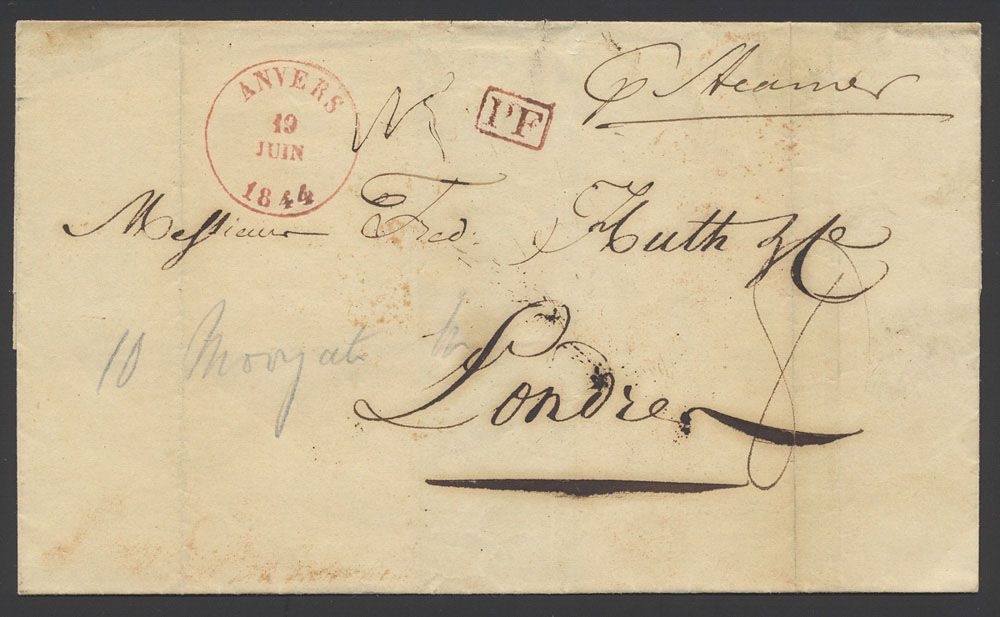 ANVERS
19
JUIN
1844
PF
p Steamer
Messieurs Fred. Huth & Co
10 Moorgate
Londres